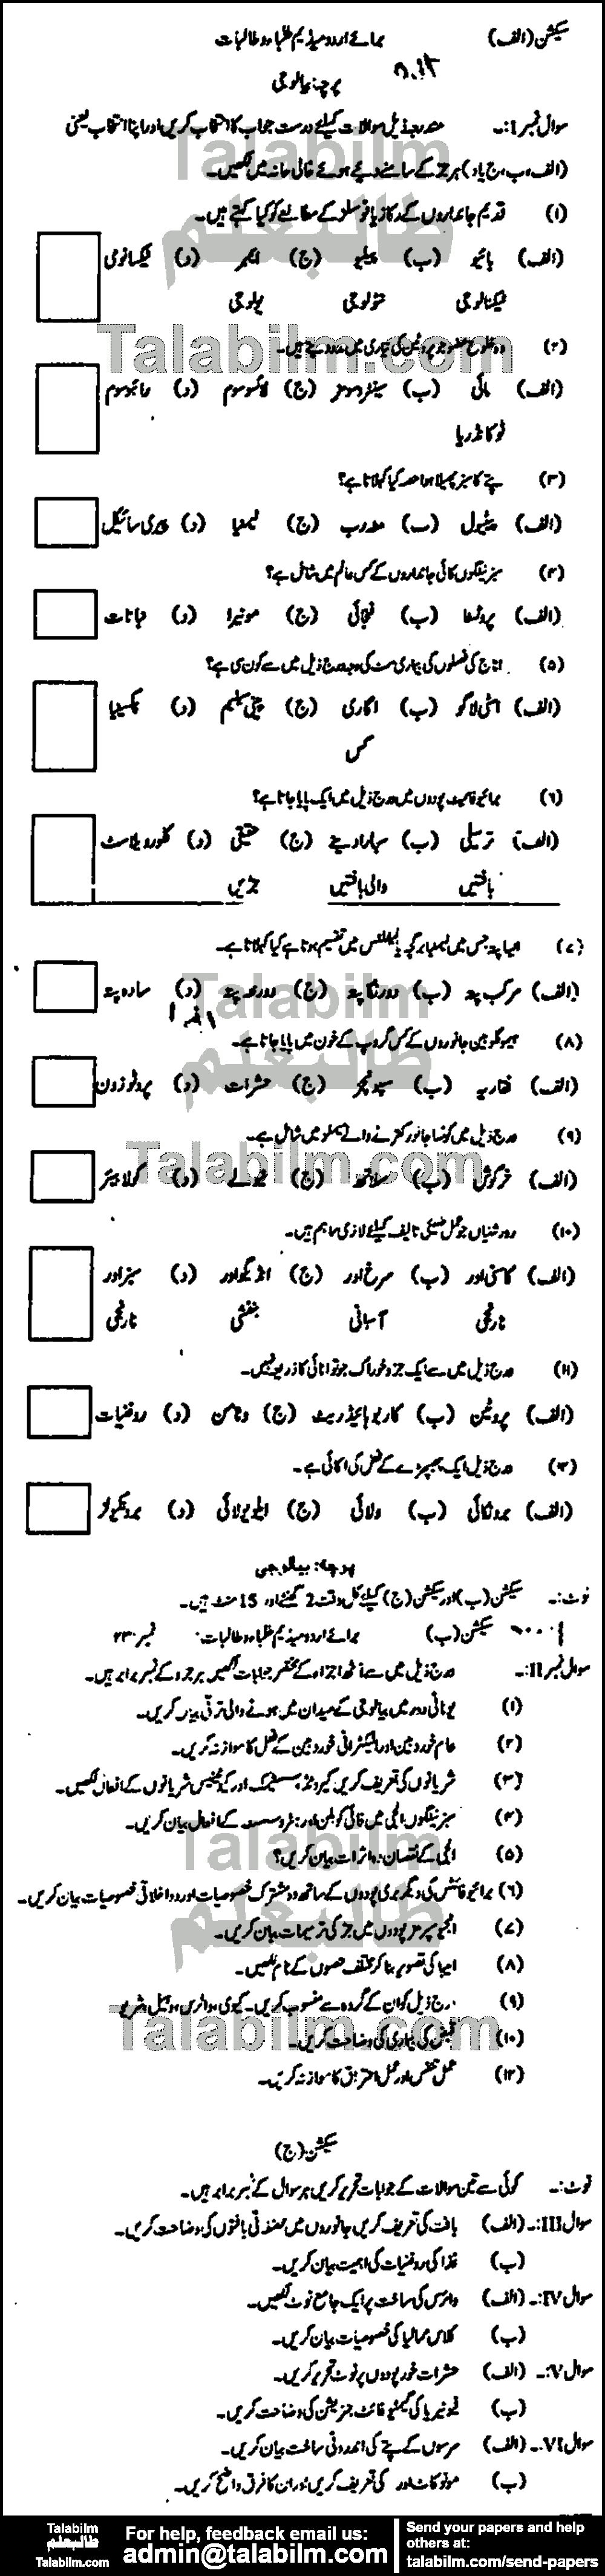 سیکشن (الف) برائے اردو میڈیم طلباء و طالبات
پرچہ بیالوجی
سوال نمبر I:۔ مندرجہ ذیل سوالات کیلئے درست جواب کا انتخاب کریں اور اپنا انتخاب یعنی
(الف، ب، ج یا د) ہر جز کے سامنے دیے ہوئے خالی خانہ میں لکھیں۔
Talabilm
طالبعلم
(۱) قدیم جانداروں کے رکاز یا فوسلز کے مطالعے کو کیا کہتے ہیں۔
(الف) بائیو (ب) پیلیو (ج) ایمبر (د) ٹیکسانومی
ٹیکنالوجی نتولوجی یولوجی
Talabilm.com
(۲) وہ خلوی عضو جو پروٹین کی تیاری میں مدد دیتے ہیں۔
(الف) مائی (ب) سینٹروسومز (ج) لائسوسوم (د) رائبوسوم
ٹوکانڈریا
(۳) پتے کا سبز پھیلا ہوا حصہ کیا کہلاتا ہے؟
(الف) پیٹیول (ب) مدرب (ج) لیمینا (د) پیری سائیکل
(۴) سبز نیلگوں کائی جانداروں کے کس عالم میں شامل ہے؟
(الف) پروٹسٹا (ب) فنجائی (ج) مونیرا (د) نباتات
(۵) اناج کی فصلوں کی بیماری سمٹ کی وجہ درج ذیل میں سے کون سی ہے؟
(الف) اسٹی لاگو (ب) اگاری (ج) پینی سیلیم (د) پکسینیا
کس
(۶) برائیوفائیٹ پودوں میں درج ذیل میں ایک پایا جاتا ہے؟
(الف) ترسیلی (ب) سہارا دینے (ج) حقیقی (د) کلوروپلاسٹ
بافتیں والی بافتیں جڑیں
(۷) ایسا پتہ جس میں لیمینا برگچہ یا لیفلٹس میں تقسیم ہوتا ہے کیا کہلاتا ہے۔
(الف) مرکب پتہ (ب) دورنگا پتہ (ج) دو رخہ پتہ (د) سادہ پتہ
Talabilm
طالبعلم
(۸) ہیموگلوبین جانوروں کے کس گروپ کے خون میں پایا جاتا ہے۔
(الف) فقاریہ (ب) سپونجز (ج) حشرات (د) پروٹوزون
(۹) درج ذیل میں کونسا جانور کترنے والے میملز میں شامل ہے۔
Talabilm.com
(الف) خرگوش (ب) (ج) نیولے (د)
(۱۰) روشنیاں جو عمل ضیائی تالیف کیلئے لازمی و اہم ہیں۔
(الف) کاسنی اور (ب) سرخ اور (ج) انڈیگو اور (د) سبز اور
نارنجی آسمانی بنفشی نارنجی
(۱۱) درج ذیل میں سے ایک جزو خوراک جو توانائی کا ذریعہ نہیں۔
(الف) پروٹین (ب) کاربوہائیڈریٹ (ج) وٹامن (د) روغنیات
(۱۲) درج ذیل ایک پھیپڑے کے فعل کی اکائی ہے۔
(الف) برونکائی (ب) ولائی (ج) ایلویولائی (د) برونکیولز
پرچہ: بیالوجی
نوٹ:۔ سیکشن (ب) اور سیکشن (ج) کیلئے کل وقت 2 گھنٹے اور 15 منٹ ہیں۔
سیکشن (ب) برائے اردو میڈیم طلباء و طالبات۔ نمبر:
سوال نمبر II:۔ درج ذیل میں سے آٹھ اجزاء کے مختصر جوابات لکھیں ہر جزو کے نمبر برابر ہیں۔
(۱) یونانی دور میں بیالوجی کے میدان میں ہونے والی ترقی بیان کریں۔
(۲) عام خوردبین اور الیکٹرانی خوردبین کے فعل کا موازنہ کریں۔
(۳) شریانوں کی تعریف کریں کیروٹڈ، سسٹیمک اور گیسٹریس شریانوں کے افعال لکھیں۔
(۴) سبز نیلگوں الجی میں فائی کوبلن اور ہیٹروسسٹ کے افعال بیان کریں۔
Talabilm
(۵) الجی کے نقصان دہ اثرات بیان کریں؟
(۶) برائیوفائٹس کی دیگر بری پودوں کے ساتھ دو مشترک خصوصیات اور دو اخلاقی خصوصیات بیان کریں۔
طالبعلم
(۷) انجیوسپرمز پودوں میں جڑ کی ترمیمات بیان کریں۔
(۸) امیبا کی تصویر بنا کر مختلف حصوں کے نام لکھیں۔
(۹) درج ذیل کو ان کے گروہ سے منسوب کریں۔ کیوی، والرس، وہیل، شیر
Talabilm.com
(۱۰) قبض کی بیماری کی وضاحت کریں۔
(۱۲) عمل تنفس اور عمل احتراق کا موازنہ کریں۔
سیکشن: (ج)
نوٹ:۔ کوئی سے تین سوالات کے جوابات تحریر کریں ہر سوال کے نمبر برابر ہیں۔
سوال III:۔ (الف) بافت کی تعریف کریں جانوروں میں عضلاتی بافتوں کی وضاحت کریں۔
(ب) غذا کی روغنیات کی اہمیت بیان کریں۔
سوال IV:۔ (الف) وائرس کی ساخت پر ایک جامع نوٹ لکھیں۔
(ب) کلاس ممالیا کی خصوصیات بیان کریں۔
سوال V:۔ (الف) حشرات خور پودوں پر نوٹ تحریر کریں۔
(ب) فیونیریا کی گیمیٹو فائٹ جنریشن کی وضاحت کریں۔
سوال VI:۔ (الف) سرسوں کے پتے کی اندرونی ساخت بیان کریں۔
(ب) مونوکاٹ اور کی تعریف کریں؛ اور ان کا فرق واضح کریں۔
Talabilm
طالبعلم
Talabilm.com
For help, feedback email us:
admin@talabilm.com
Send your papers and help
others at:
talabilm.com/send-papers